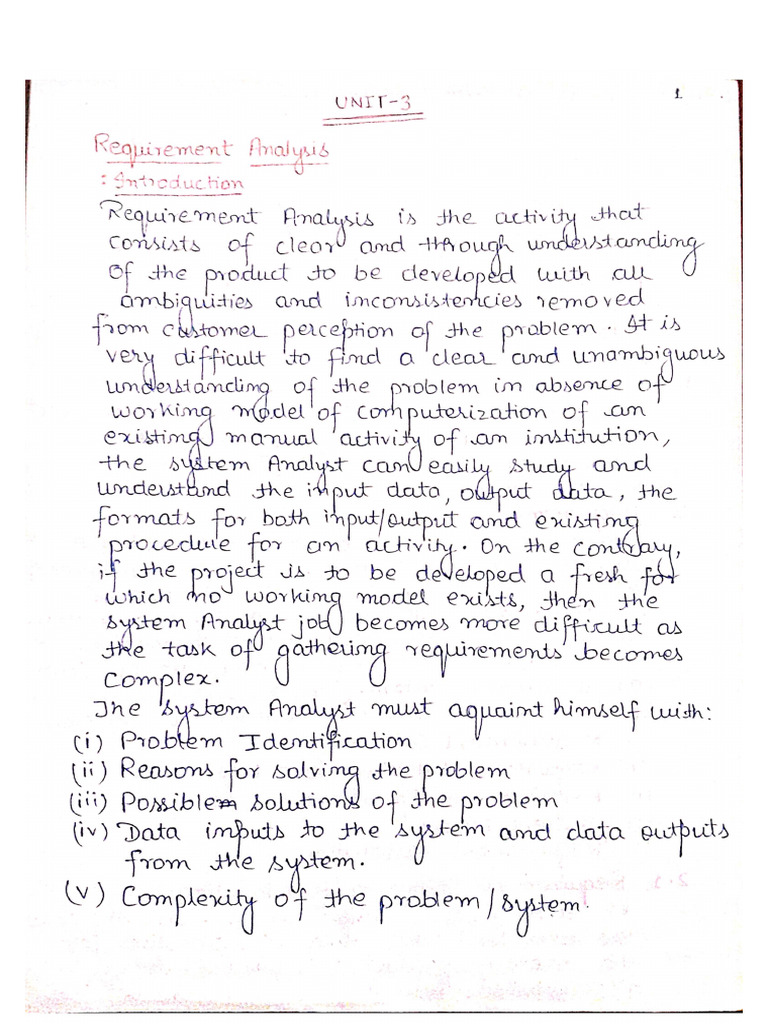 UNIT-3
1
Requirement Analysis
: Introduction
Requirement Analysis is the activity that
consists of clear and through understanding
of the product to be developed with all
ambiguities and inconsistencies removed
from customer perception of the problem. It is
very difficult to find a clear and unambiguous
understanding of the problem in absence of
working model of computerization of an
existing manual activity of an institution,
the system Analyst can easily study and
understand the input data, output data, the
formats for both input/output and existing
procedure for an activity. On the contrary,
if the project is to be developed a fresh for
which no working model exists, then the
system Analyst job becomes more difficult as
the task of gathering requirements becomes
complex.
The system Analyst must aquaint himself with:
(i) Problem Identification
(ii) Reasons for solving the problem
(iii) Possible solutions of the problem
(iv) Data inputs to the system and data outputs
from the system.
(v) Complexity of the problem/system.